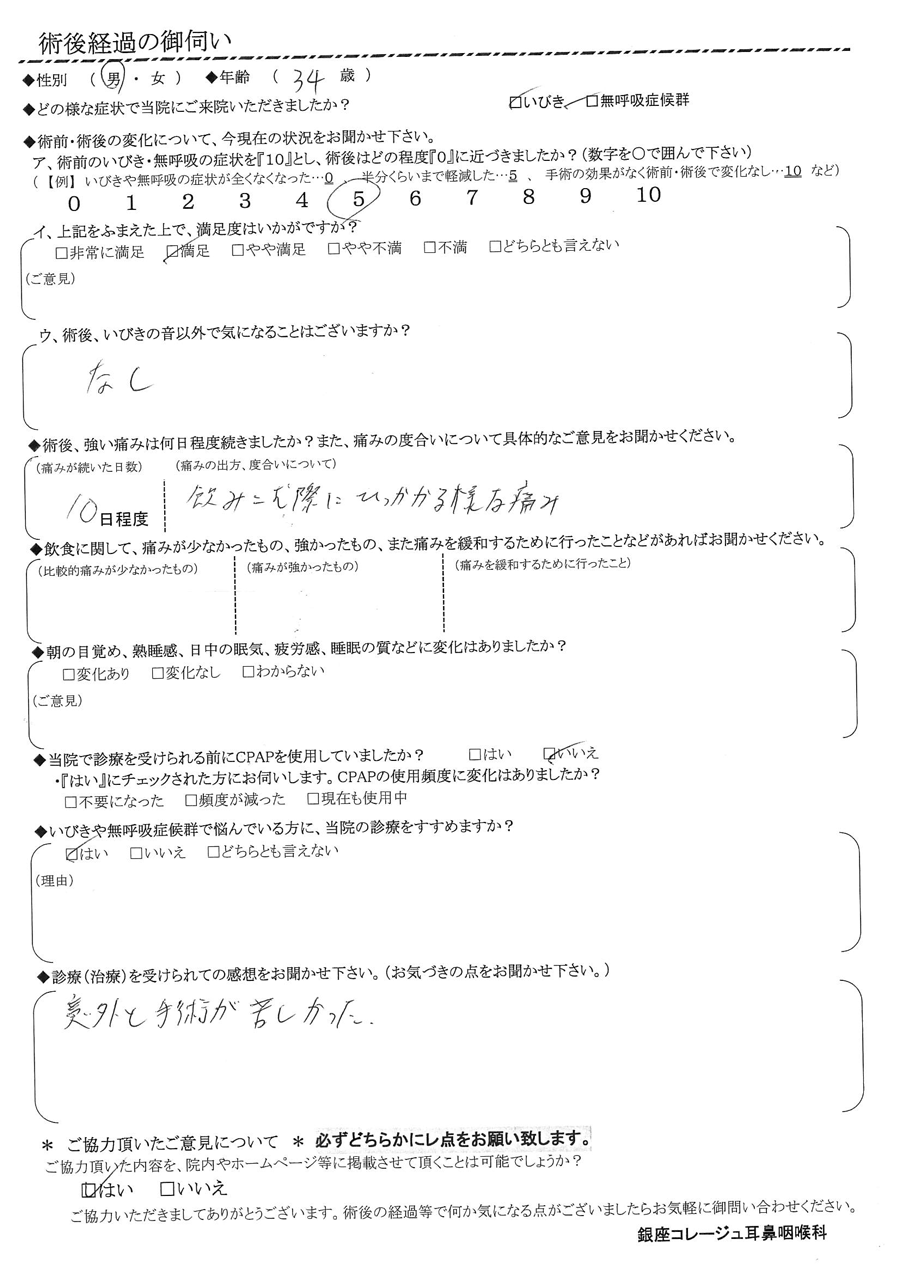 術後経過の御伺い
◆性別 （ 男 ・ 女 ） ◆年齢 （ 34 歳 ）
◆どの様な症状で当院にご来院いただきましたか？ ☑いびき ☐無呼吸症候群
◆術前・術後の変化について、今現在の状況をお聞かせ下さい。
ア、術前のいびき・無呼吸の症状を『10』とし、術後はどの程度『0』に近づきましたか？（数字を〇で囲んで下さい）
（ 【例】 いびきや無呼吸の症状が全くなくなった…0 、 半分くらいまで軽減した…5 、 手術の効果がなく術前・術後で変化なし…10 など）
0 1 2 3 4 5 6 7 8 9 10
イ、上記をふまえた上で、満足度はいかがですか？
☐非常に満足 ☑満足 ☐やや満足 ☐やや不満 ☐不満 ☐どちらとも言えない
（ご意見）
ウ、術後、いびきの音以外で気になることはございますか？
なし
◆術後、強い痛みは何日程度続きましたか？また、痛みの度合いについて具体的なご意見をお聞かせください。
（痛みが続いた日数） （痛みの出方、度合いについて）
10日程度 飲みこむ際にひっかかる様な痛み
◆飲食に関して、痛みが少なかったもの、強かったもの、また痛みを緩和するために行ったことなどがあればお聞かせください。
（比較的痛みが少なかったもの） （痛みが強かったもの） （痛みを緩和するために行ったこと）
◆朝の目覚め、熟睡感、日中の眠気、疲労感、睡眠の質などに変化はありましたか？
☐変化あり ☐変化なし ☐わからない
（ご意見）
◆当院で診療を受けられる前にCPAPを使用していましたか？ ☐はい ☑いいえ
・『はい』にチェックされた方にお伺いします。CPAPの使用頻度に変化はありましたか？
☐不要になった ☐頻度が減った ☐現在も使用中
◆いびきや無呼吸症候群で悩んでいる方に、当院の診療をすすめますか？
☑はい ☐いいえ ☐どちらとも言えない
（理由）
◆診療（治療）を受けられての感想をお聞かせ下さい。（お気づきの点をお聞かせ下さい。）
意外と手術が苦しかった.
＊ ご協力頂いたご意見について ＊ 必ずどちらかにレ点をお願い致します。
ご協力頂いた内容を、院内やホームページ等に掲載させて頂くことは可能でしょうか？
☑はい ☐いいえ
ご協力いただきましてありがとうございます。術後の経過等で何か気になる点がございましたらお気軽に御問い合わせください。
銀座コレージュ耳鼻咽喉科